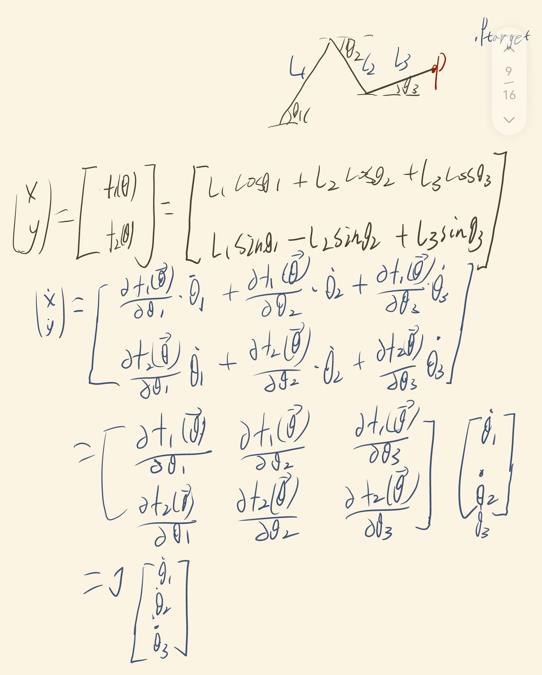 P target
L1 θ2 L2 L3 P
θ1 θ3
9
16
(x y) = [f1(θ) f2(θ)] = [L1 cosθ1 + L2 cosθ2 + L3 cosθ3
L1 sinθ1 - L2 sinθ2 + L3 sinθ3]
(ẋ ẏ) = [∂f1(θ⃗)/∂θ1 · θ̇1 + ∂f1(θ⃗)/∂θ2 · θ̇2 + ∂f1(θ⃗)/∂θ3 · θ̇3
∂f2(θ⃗)/∂θ1 θ̇1 + ∂f2(θ⃗)/∂θ2 · θ̇2 + ∂f2(θ⃗)/∂θ3 θ̇3]
= [∂f1(θ⃗)/∂θ1 ∂f1(θ⃗)/∂θ2 ∂f1(θ⃗)/∂θ3
∂f2(θ⃗)/∂θ1 ∂f2(θ⃗)/∂θ2 ∂f2(θ⃗)/∂θ3] [θ̇1 θ̇2 θ̇3]
= J [θ̇1
θ̇2
θ̇3]